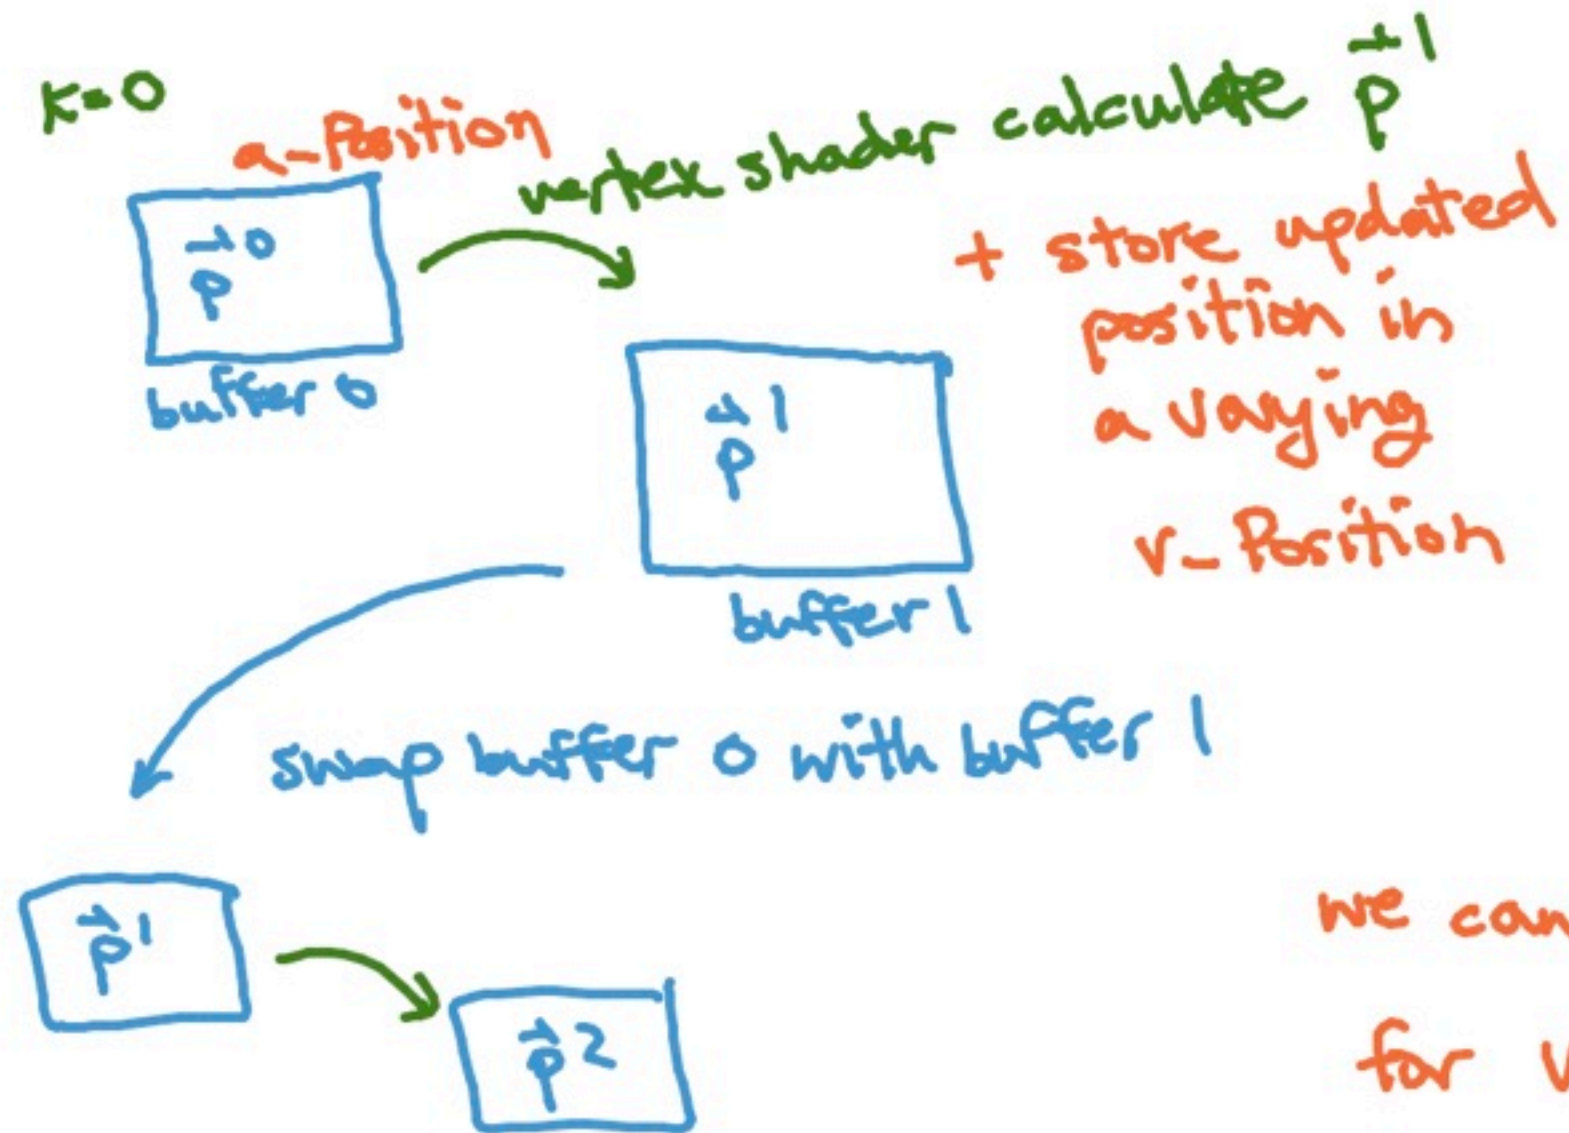 K=0
a_Position
vertex shader calculate p⃗¹
+ store updated
position in
a varying
v_Position
p⃗⁰
buffer 0
p⃗¹
buffer 1
swap buffer 0 with buffer 1
p⃗¹
p⃗²
we can
for